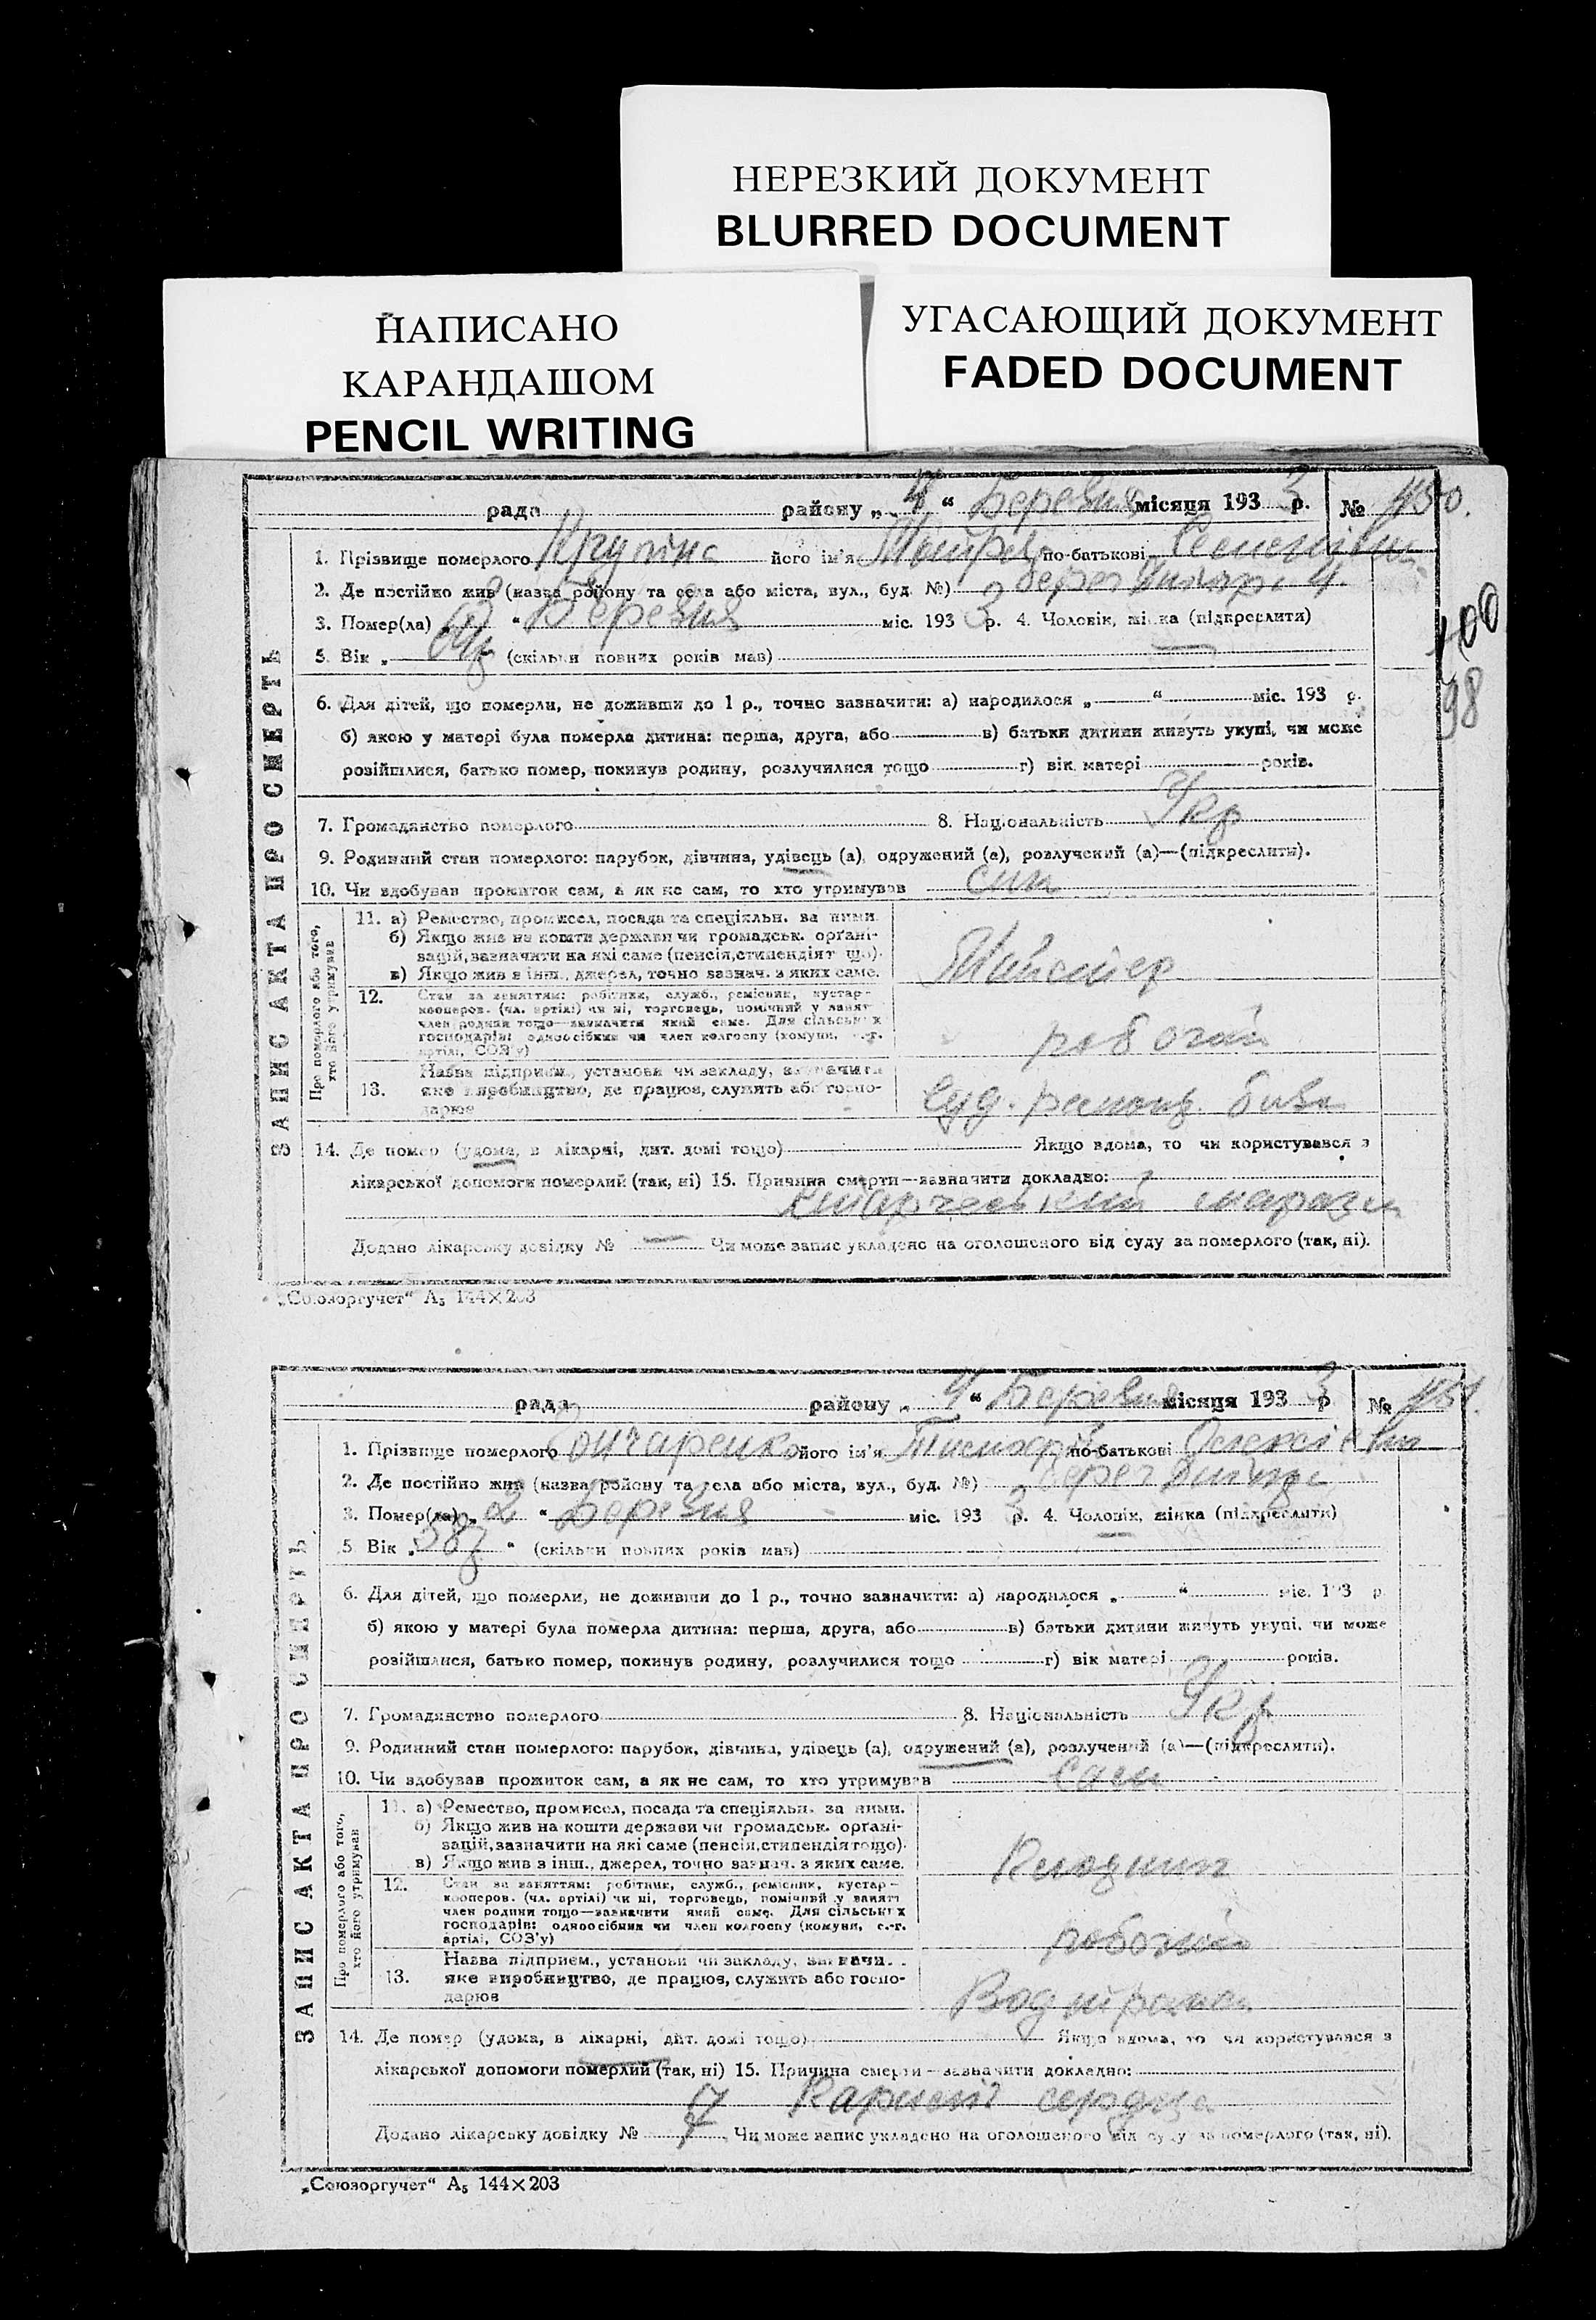 НЕРЕЗКИЙ ДОКУМЕНТ
BLURRED DOCUMENT
НАПИСАНО
КАРАНДАШОМ
PENCIL WRITING
УГАСАЮЩИЙ ДОКУМЕНТ
FADED DOCUMENT
рада району „ 4 “ Березня місяця 193 3 р. № 450.
1. Прізвище померлого його ім'я по-батькові
2. Де постійно жив (назва району та села або міста, вул., буд. №) берег Дніпра 4.
3. Помер(ла) “ Березня міс. 193 3 р. 4. Чоловік, жінка (підкреслити)
100
5. Вік „ (скільки повних років мав)
98
6. Для дітей, що померли, не доживши до 1 р., точно зазначити: а) народилося „ “ міс. 193 р.
б) якою у матері була померла дитина: перша, друга, або в) батьки дитини живуть укупі, чи може
розійшлися, батько помер, покинув родину, розлучилися тощо г) вік матері років.
7. Громадянство померлого 8. Національність Укр
9. Родинний стан померлого: парубок, дівчина, удівець (а), одружений (а), розлучений (а)—(підкреслити).
10. Чи здобував прожиток сам, а як не сам, то хто утримував син
ЗАПИС АКТА ПРО СМЕРТЬ
Про померлого або того, хто його утримував
11. а) Ремество, промисел, посада та спеціяльн. за ними.
б) Якщо жив на кошти держави чи громадськ. орґані-
зацій, зазначити на які саме (пенсія, стипендія т що).
в) Якщо жив з інш., джерел, точно зазнач. з яких саме.
12. Стан за заняттям: робітник, служб., ремісник, кустар-
кооперов. (чл. артілі) чи ні, торговець, помічний у занят
член родини тощо—зазначити який саме. Для сільських
господарів: одноосібник чи член колгоспу (комуни, с.-г.
артілі, СОЗ'у)
робочий
13. Назва підприєм., установи чи закладу, зазначити
яке виробництво, де працює, служить або госпо-
дарює
Суд. ремонт. база
14. Де помер (удома, в лікарні, дит. домі тощо) Якщо вдома, то чи користувався з
лікарської допомоги померлий (так, ні) 15. Причина смерти—зазначити докладно:
маразм
Додано лікарську довідку № — Чи може запис укладено на оголошеного від суду за померлого (так, ні).
„Союзоргучет“ А₅ 144×203
рада району „ 4 “ Березня місяця 193 3 р № 451.
1. Прізвище померлого Гончаренко його ім'я по-батькові
2. Де постійно жив (назва району та села або міста, вул., буд. №) берег Дніпра
3. Помер(ла) „ 2 “ Березня міс. 193 3 р. 4. Чоловік, жінка (підкреслити)
5 Вік „ “ (скільки повних років мав)
6. Для дітей, що померли, не доживши до 1 р., точно зазначити: а) народилося „ “ міс. 193 р
б) якою у матері була померла дитина: перша, друга, або в) батьки дитини живуть укупі, чи може
розійшлися, батько помер, покинув родину, розлучилися тощо г) вік матері років.
7. Громадянство померлого 8. Національність Укр
9. Родинний стан померлого: парубок, дівчина, удівець (а), одружений (а), розлучений (а)—(підкреслити).
10. Чи здобував прожиток сам, а як не сам, то хто утримував сам
ЗАПИС АКТА ПРО СМЕРТЬ
Про померлого або того, хто його утримував
11. а) Ремество, промисел, посада та спеціяльн. за ними.
б) Якщо жив на кошти держави чи громадськ. орґані-
зацій, зазначити на які саме (пенсія, стипендія тощо).
в) Якщо жив з інш., джерел, точно зазнач. з яких саме.
12. Стан за заняттям: робітник, служб., ремісник, кустар-
кооперов. (чл. артілі) чи ні, торговець, помічний у занят
член родини тощо—зазначити який саме. Для сільських
господарів: одноосібник чи член колгоспу (комуни, с.-г.
артілі, СОЗ'у)
робочий
13. Назва підприєм., установи чи закладу, зазначи
яке виробництво, де працює, служить або госпо-
дарює
14. Де помер (удома, в лікарні, дит. домі тощо) Якщо вдома, то чи користувався з
лікарської допомоги померлий (так, ні) 15. Причина смерти—зазначити докладно:
сердца
Додано лікарську довідку № 7 Чи може запис укладено на оголошеного від суду за померлого (так, ні).
„Союзоргучет“ А₅ 144×203